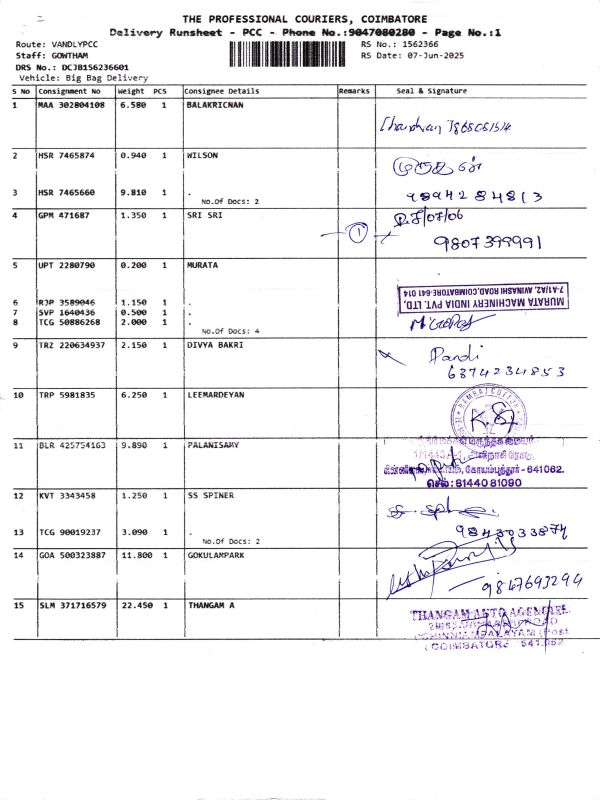 THE PROFESSIONAL COURIERS, COIMBATORE
Delivery Runsheet - PCC - Phone No.:9047080280 - Page No.:1
Route: VANDLYPCC RS No.: 1562366
Staff: GOWTHAM RS Date: 07-Jun-2025
DRS No.: DCJB156236601
Vehicle: Big Bag Delivery
S No Consignment No Weight PCS Consignee Details Remarks Seal & Signature
1 MAA 302804108 6.580 1 BALAKRICNAN
2 HSR 7465874 0.940 1 WILSON
முருகேசன்
3 HSR 7465660 9.810 1 .
9894284813
No.Of Docs: 2
4 GPM 471687 1.350 1 SRI SRI
1
9807399991
5 UPT 2280790 0.200 1 MURATA
MURATA MACHINERY INDIA PVT. LTD.
7-41/A2, AVINASHI ROAD,COIMBATORE-641 014
6 RJP 3589046 1.150 1 .
7 SVP 1640436 0.500 1 .
8 TCG 50886268 2.000 1 .
No.Of Docs: 4
9 TRZ 220634937 2.150 1 DIVYA BAKRI
Pandi
6374234853
10 TRP 5981835 6.250 1 LEEMARDEYAN
RAMRAJ COTTON
11 BLR 425754163 9.890 1 PALANISAMY
கோயம்புத்தூர் - 641062.
செல் : 81440 81090
12 KVT 3343458 1.250 1 SS SPINER
13 TCG 90019237 3.090 1 .
9843033874
No.Of Docs: 2
14 GOA 500323887 11.800 1 GOKULAMPARK
9867693294
15 SLM 371716579 22.450 1 THANGAM A
THANGAM AUTO AGENCIES
COIMBATORE